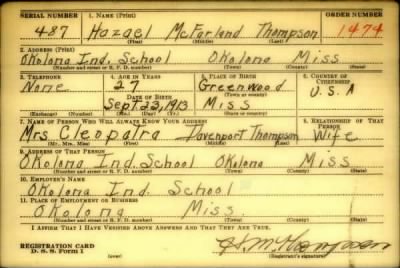 SERIAL NUMBER 1. NAME (Print) ORDER NUMBER
487 Hazael McFarland Thompson 1474
(First) (Middle) (Last)
2. ADDRESS (Print)
Okolona Ind. School Okolona Miss
(Number and street or R. F. D. number) (Town) (County) (State)
3. TELEPHONE 4. AGE IN YEARS 5. PLACE OF BIRTH 6. COUNTRY OF CITIZENSHIP
None 27 Greenwood
DATE OF BIRTH (Town or county) U.S.A
Sept. 23, 1913 Miss
(Exchange) (Number) (Mo.) (Day) (Yr.) (State or country)
7. NAME OF PERSON WHO WILL ALWAYS KNOW YOUR ADDRESS 8. RELATIONSHIP OF THAT PERSON
Mrs Cleopatra Davenport Thompson Wife
(Mr., Mrs., Miss) (First) (Middle) (Last)
9. ADDRESS OF THAT PERSON
Okolona Ind. School Okolona Miss
(Number and street or R. F. D. number) (Town) (County) (State)
10. EMPLOYER'S NAME
Okolona Ind. School
11. PLACE OF EMPLOYMENT OR BUSINESS
Okolona Miss
(Number and street or R. F. D. number) (Town) (County) (State)
I AFFIRM THAT I HAVE VERIFIED ABOVE ANSWERS AND THAT THEY ARE TRUE.
H. M. Thompson
REGISTRATION CARD
D. S. S. Form 1 (over) (Registrant's signature)